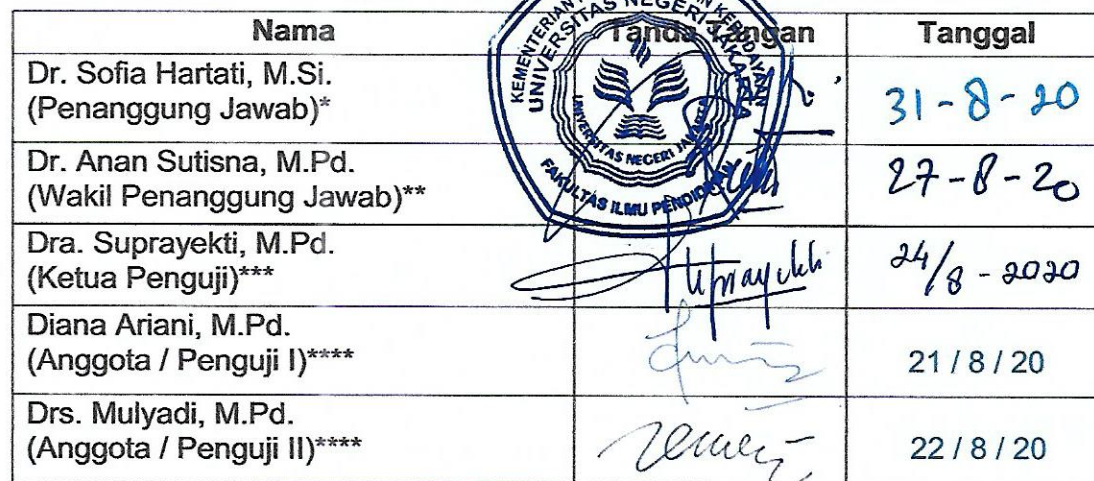 Nama Tanda Tangan Tanggal
Dr. Sofia Hartati, M.Si.
(Penanggung Jawab)* 31-8-20
Dr. Anan Sutisna, M.Pd.
(Wakil Penanggung Jawab)** 27-8-20
Dra. Suprayekti, M.Pd.
(Ketua Penguji)*** 24/8-2020
Diana Ariani, M.Pd.
(Anggota / Penguji I)**** 21 / 8 / 20
Drs. Mulyadi, M.Pd.
(Anggota / Penguji II)**** 22 / 8 / 20
UNIVERSITAS NEGERI JAKARTA
UNIVERSITAS NEGERI JAKARTA
FAKULTAS ILMU PENDIDIKAN